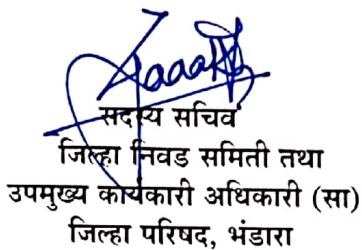 सदस्य सचिव
जिल्हा निवड समिती तथा
उपमुख्य कार्यकारी अधिकारी (सा)
जिल्हा परिषद, भंडारा